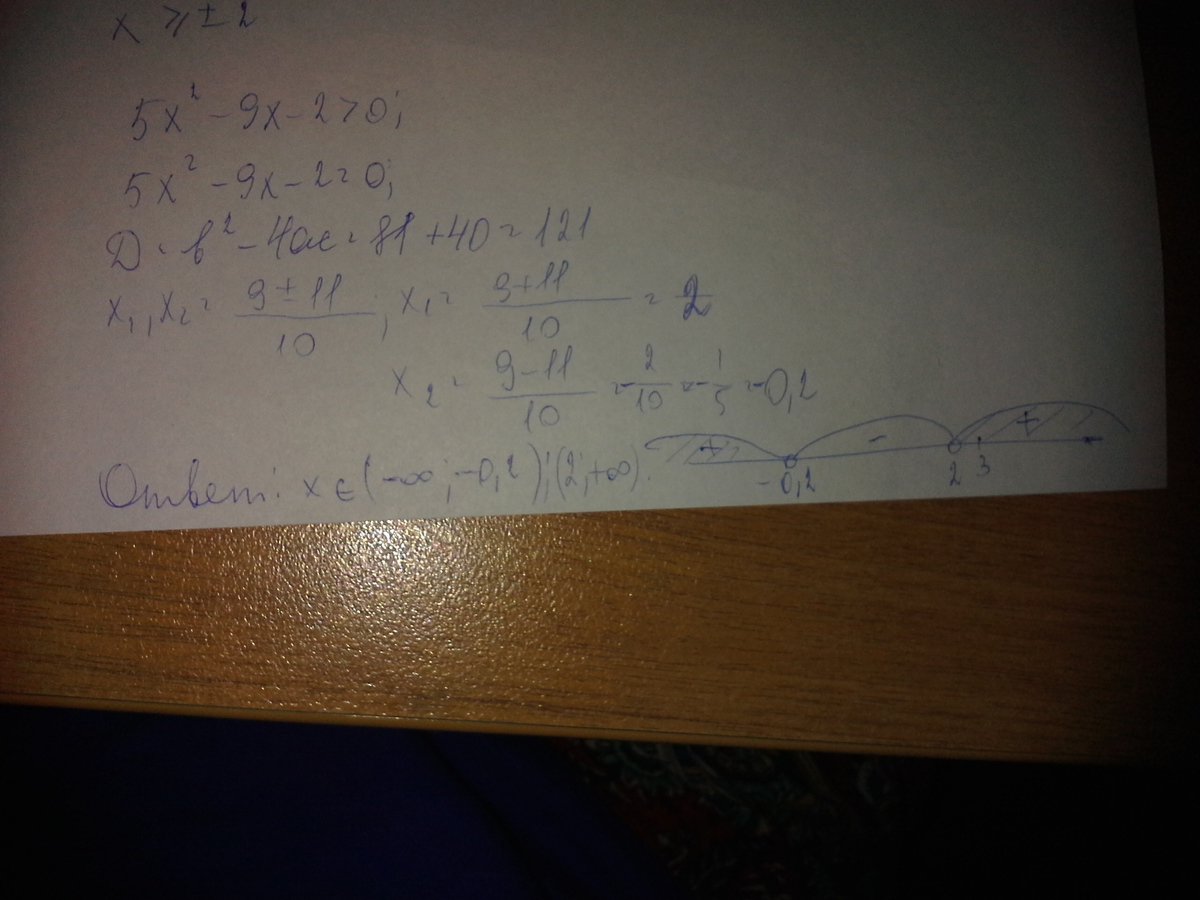 x ⩾ ± 2
5x² - 9x - 2 > 0;
5x² - 9x - 2 = 0;
D = b² - 4ac = 81 + 40 = 121
x₁, x₂ = (9 ± 11)/10; x₁ = (9+11)/10 = 2
x₂ = (9-11)/10 = -2/10 = -1/5 = -0,2
+ - +
-0,2 2 3
Ответ: x ∈ (-∞; -0,2); (2; +∞).